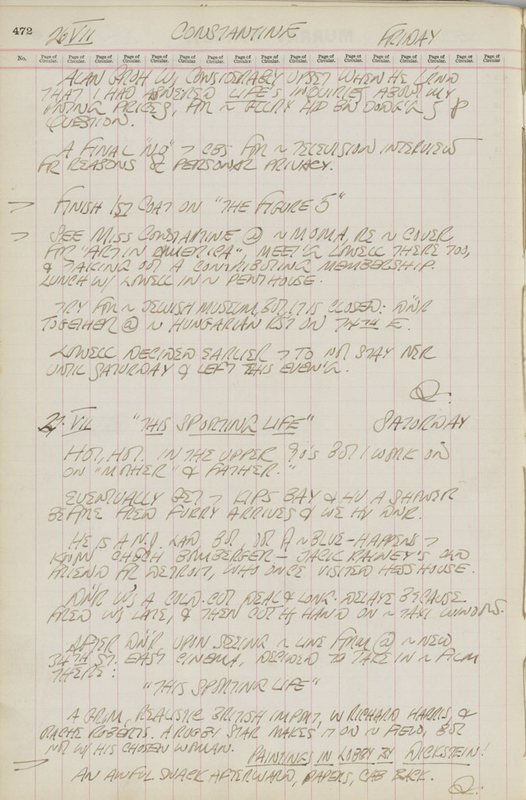 472
26 VII CONSTANTINE FRIDAY
No. Page of Circular. Page of Circular. Page of Circular. Page of Circular. Page of Circular. Page of Circular. Page of Circular. Page of Circular. Page of Circular. Page of Circular. Page of Circular. Page of Circular.
ALAN WS CONSIDERABLY UPSET WHEN HE
THAT I HAD ANSWERED LIFE'S INQUIRIES ABOUT MY
PRICES, FR ~ HD BN
QUESTION.
A FINAL "NO" → CBS FR ~ TELEVISION INTERVIEW
FR REASONS OF PERSONAL PRIVACY.
FINISH 1ST COAT ON "THE FIGURE 5"
SEE MISS CONSTANTINE @ ~ MOMA, RE ~ COVER
FOR "ART IN AMERICA". MEET'G LOWELL THERE TOO,
& TAKING OUT A CONTRIBUTING MEMBERSHIP.
LUNCH W/ LOWELL IN ~ PENTHOUSE.
TRY FR ~ JEWISH MUSEUM, BUT IT IS CLOSED: DN'R
TOGETHER @ ~ HUNGARIAN RST ON 79TH E.
LOWELL DECIDED EARLIER → TO NOT STAY
UNTIL SATURDAY & LEFT THIS EVEN'G.
27 VII "THIS SPORTING LIFE" SATURDAY
HOT, HOT. IN THE UPPER 90'S BUT I WORK ON
ON "MOTHER" & FATHER."
EVENTUALLY GET → KIPS BAY & HV A SHOWER
BEFORE FRED FURRY ARRIVES & WE HV DNR.
HE IS A N.J. LAD BUT, OUT OF ~ BLUE-HAPPENS →
KNOW CHUCH - JACK RAINEY'S OLD
FRIEND FR DETROIT, WHO ONCE VISITED HESS HOUSE.
DN'R WS A COLD-CUT DEAL & LONG DELAYED BECAUSE
FRED WS LATE, & THEN CUT HS HAND ON ~ TAXI WINDOWS.
AFTER DN'R UPON SEEING ~ LINE FORM @ ~ NEW
34TH ST. EAST CINEMA, DECIDED TO TAKE IN ~ FILM
THERE:
"THIS SPORTING LIFE"
A GRIM, REALISTIC BRITISH IMPORT, W RICHARD HARRIS, &
RACHEL ROBERTS. A RUGBY STAR MAKES IT ON ~ FIELD, BUT
NOT W/ HIS CHOSEN WOMAN.
PAINTINGS IN LOBBY BY DICKSTEIN!
AN AWFUL SNACK AFTERWARD, PAPERS, CAB BACK.